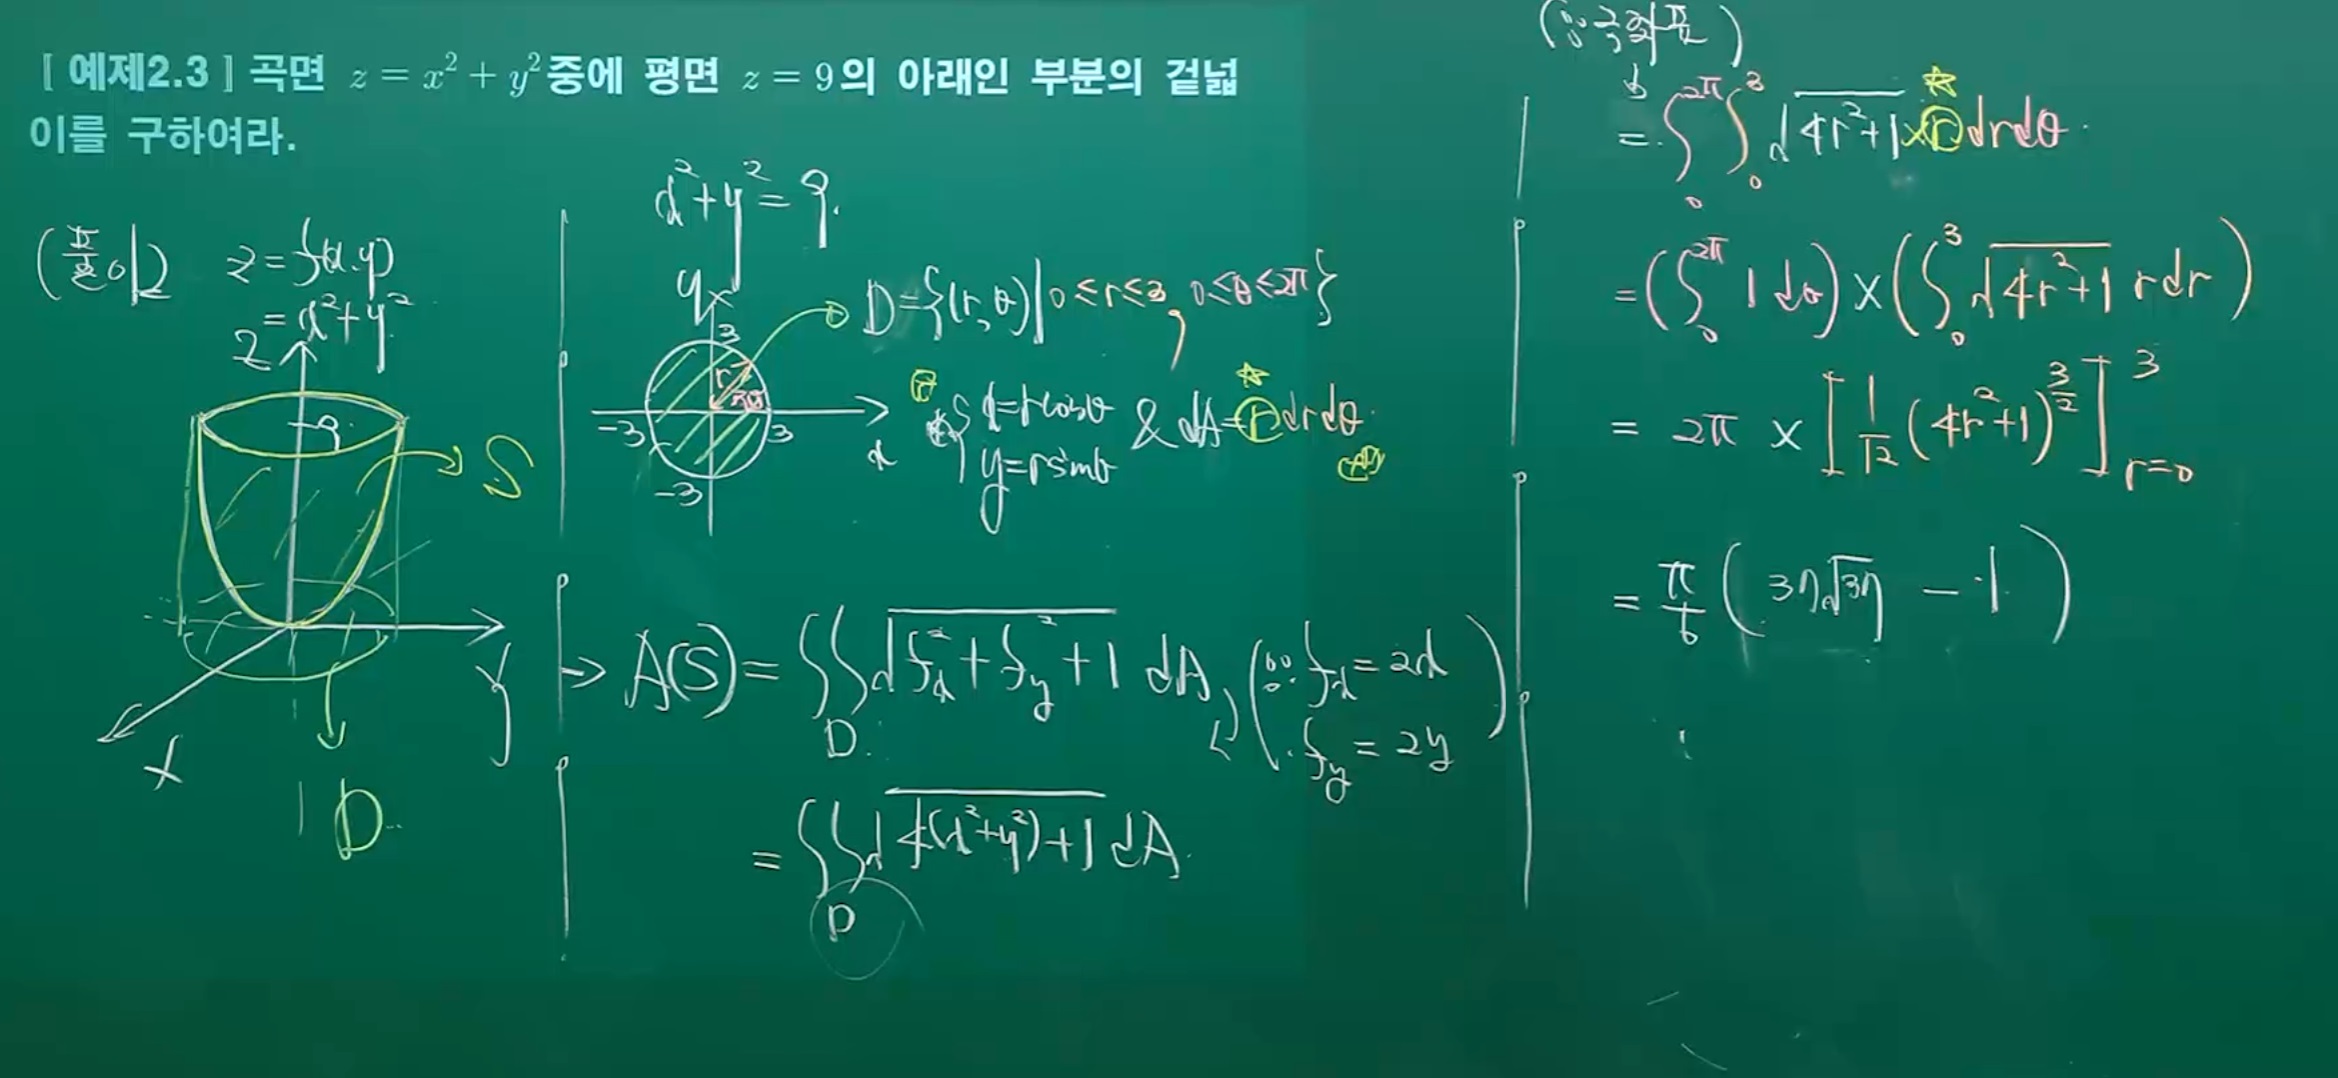 [ 예제2.3 ] 곡면 z = x² + y² 중에 평면 z = 9의 아래인 부분의 겉넓
이를 구하여라.
z = f(x,y)
= x² + y²
z
9
S
y
x
D
x² + y² = 9.
y
3
r
-3
3
x
-3
D = {(r, θ) | 0 ≤ r ≤ 3, 0 ≤ θ ≤ 2π}
x = r cosθ
y = r sinθ
& dA = r dr dθ
→ A(S) = ∬_D √(f_x² + f_y² + 1) dA, (∵ f_x = 2x
f_y = 2y)
= ∬_D √(4(x²+y²)+1) dA
= ∫₀^{2π} ∫₀³ √(4r²+1) × r dr dθ
= (∫₀^{2π} 1 dθ) × (∫₀³ √(4r²+1) r dr)
= 2π × [1/12 (4r²+1)^{3/2}]_{r=0}^{3}
= π/6 (37√37 − 1)